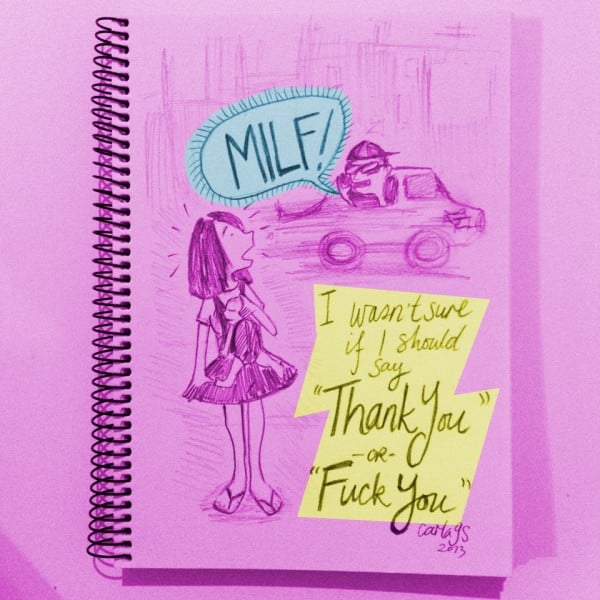 MILF!
I wasn't sure
if I should
say
"Thank You"
-OR-
"Fuck You"
carlays
2013